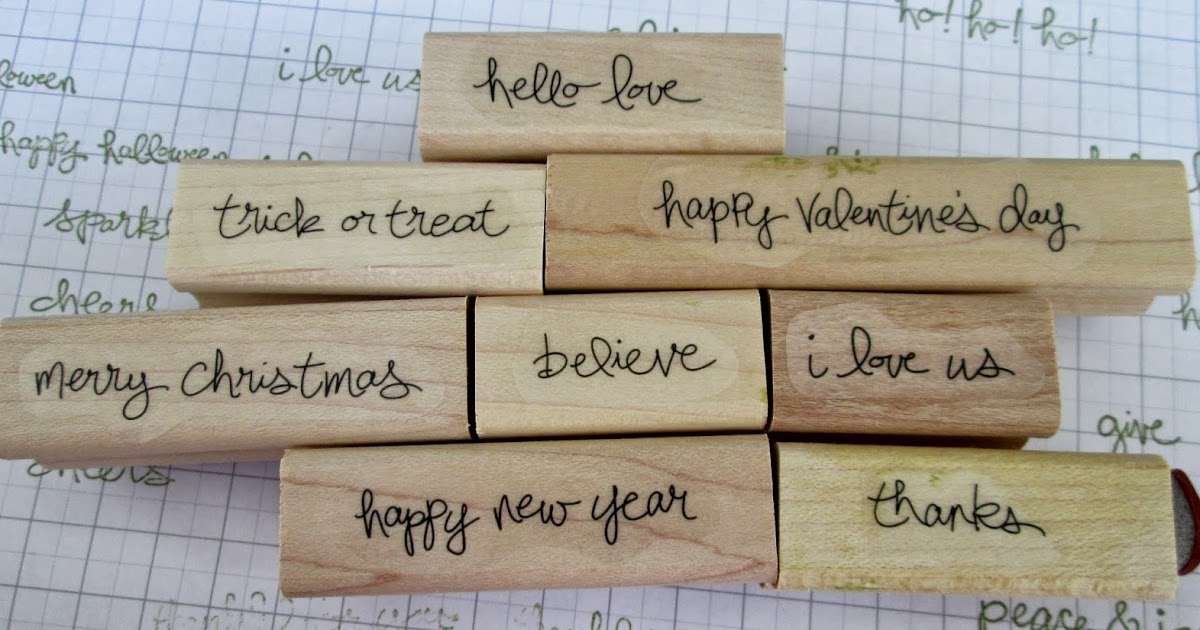 ho! ho! ho!
i love us
hello love
happy halloween
trick or treat
happy valentine's day
cheers
merry christmas
believe
i love us
give
cheers
happy new year
thanks
peace &